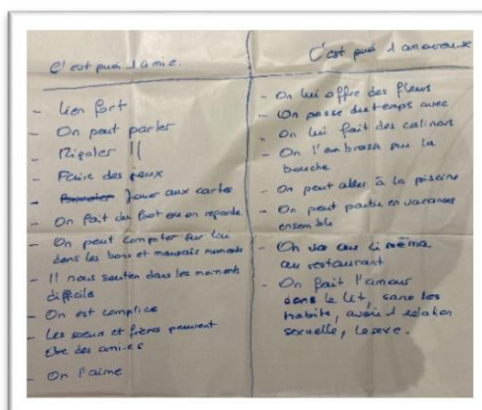 C'est quoi l'amie.
- Lien fort
- On peut parler
- Rigoler !!
- Faire des jeux
- Jouer aux cartes
- On fait du foot ou on regarde
- On peut compter sur lui
dans les bons et mauvais moments
- Il nous soutien dans les moments
difficile
- On est complice
- Les sœurs et frères peuvent
être des ami-es
- On l'aime
C'est quoi l'amoureux
- On lui offre des fleurs
- On passe du temps avec
- On lui fait des calinous
- On l'embrasse sur la
bouche
- On peut aller à la piscine
- On peut partir en vacances
ensemble
- On va au cinéma
au restaurant
- On fait l'amour
dans le lit, sans les
habits, avoir 1 relation
sexuelle, le sexe.